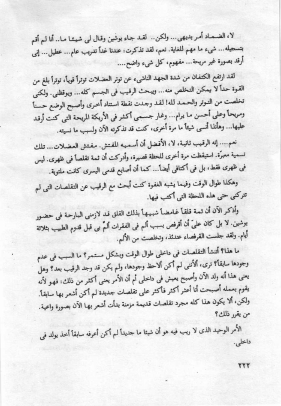 لا، الضماد أمر بديهى... ولكن.. لقد جاء يوشين وقال لى شيئا ما.. أنا لم أقم
بتسجيله... شىء ما مهم للغاية. نعم، لقد تذكرت: عندنا غداً تدريب عام... عليل... إنى
أرقد بصورة غير مريحة... مفهوم، كل شىء واضح....
لقد ارتفع الكتفان من شدة الجهد الناشئ عن توتر العضلات توتراً قوياً، توتراً بلغ من
القوة حداً لا يمكن التخلص منه... ويبحث الرقيب فى الجسم كله... ويوقظنى. ولكنى
تخلصت من التوتر والحمد لله! لقد وجدت نقطة استناد أخرى وأصبح الوضع حسناً
ومريحاً وعلى أحسن ما يرام... وغار جسمى أكثر فى الأريكة المريحة التى كنت أرقد
عليها... وهأنذا أنسى شيئاً ما مرة أخرى، كنت قد تذكرته الآن ولسبب ما نسيته.
نعم... إنه الرقيب ثانية، لا، الأفضل أن أسميه المفتش. مفتش العضلات... تلك
تسمية معبرة. استيقظت مرة أخرى للحظة قصيرة، وأدركت أن ثمة تقلصاً فى ظهرى. ليس
فى ظهرى فقط، بل فى أكتافى أيضاً... كما أن أصابع قدمى اليسرى كانت ملتوية.
وهكذا طوال الوقت وفيما يشبه الغفوة كنت أبحث مع الرقيب عن التقلصات التى لم
تتركنى حتى هذه اللحظة التى أكتب فيها.
وأذكر الآن أن ثمة قلقاً غامضاً شبيهاً بذلك القلق قد لازمنى البارحة فى حضور
يوشين. لا بل كان علىّ أن أقرفص بسبب ألم فى الفقرات ألمّ بى قبل قدوم الطبيب بثلاثة
أيام. ولقد جلست القرفصاء عندئذ، وتخلصت من الألم.
ما هذا؟ أتنشأ التقلصات فى داخلى طوال الوقت وبشكل مستمر؟ ما السبب فى عدم
وجودها سابقاً؟ ترى، ألأننى لم أكن ألاحظ وجودها، ولم يكن قد وجد الرقيب بعد؟ وهل
يعنى هذا أنه ولد الآن وأصبح يعيش فى داخلى أم أن الأمر يعنى أكثر من ذلك، فهو لأنه
يقوم بعمله أصبحت أنا أعثر أكثر فأكثر على تقلصات جديدة لم أكن أشعر بها سابقاً.
ولكن، ألا يكون هذا كله مجرد تقلصات قديمة مزمنة بدأت أشعر بها الآن بصورة واعية.
من يقرر ذلك؟
الأمر الوحيد الذى لا ريب فيه هو أن شيئا ما جديداً لم أكن أعرفه سابقاً أخذ يولد فى
داخلى.
٢٢٢